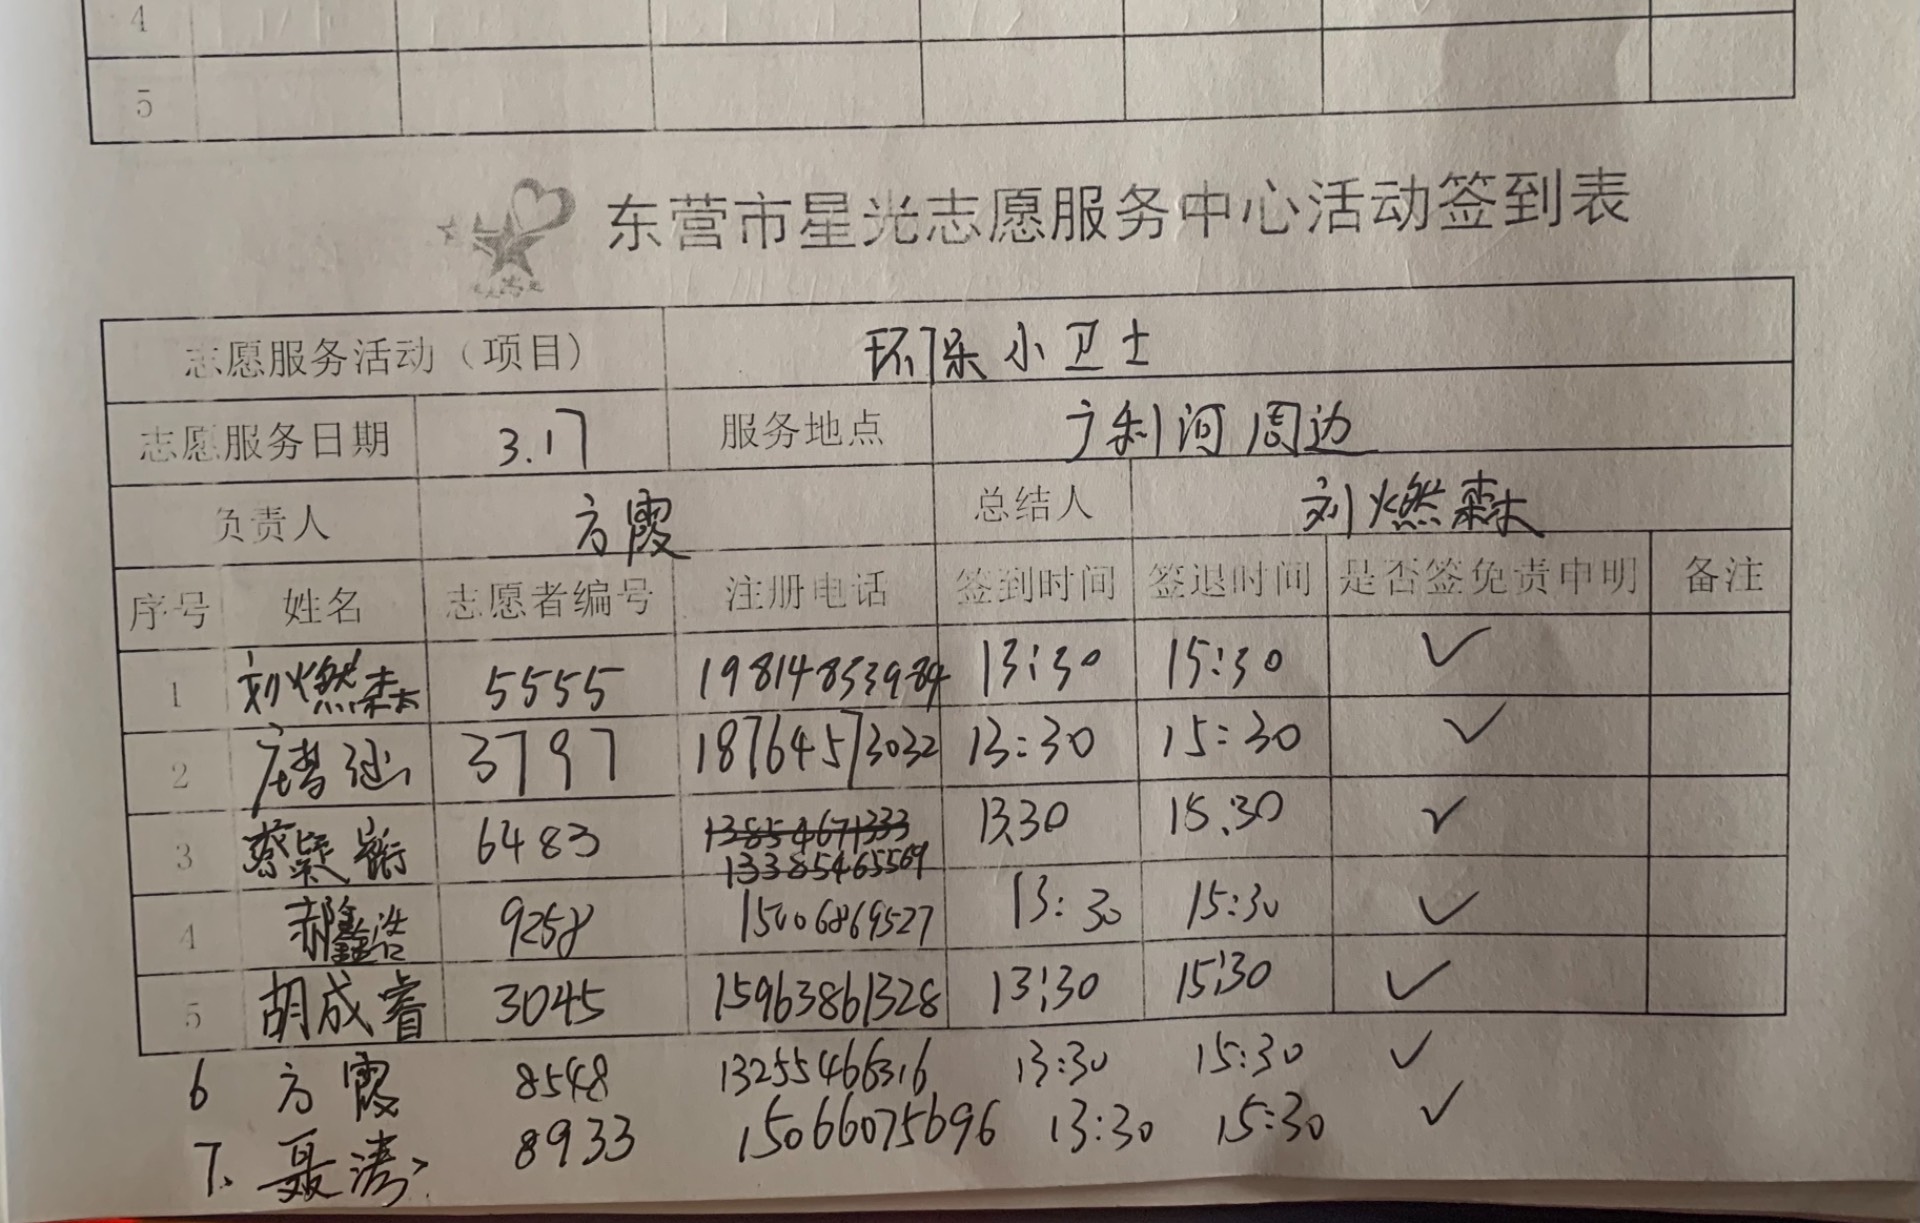 4
5
东营市星光志愿服务中心活动签到表
志愿服务活动（项目） 环保小卫士
志愿服务日期 3.17 服务地点 广利河周边
负责人 方霞 总结人 刘燃森
序号 姓名 志愿者编号 注册电话 签到时间 签退时间 是否签免责申明 备注
1 刘燃森 5555 19814853984 13:30 15:30 ✓
2 3797 18764573032 13:30 15:30 ✓
3 蔡凝 6483 13854671333 13.30 15.30 ✓
13385465569
4 郝鑫浩 9258 15006869527 13:30 15:30 ✓
5 胡成睿 3045 15963861328 13:30 15:30 ✓
6 方霞 8548 13255466316 13:30 15:30 ✓
7. 聂涛 8933 15066075696 13:30 15:30 ✓